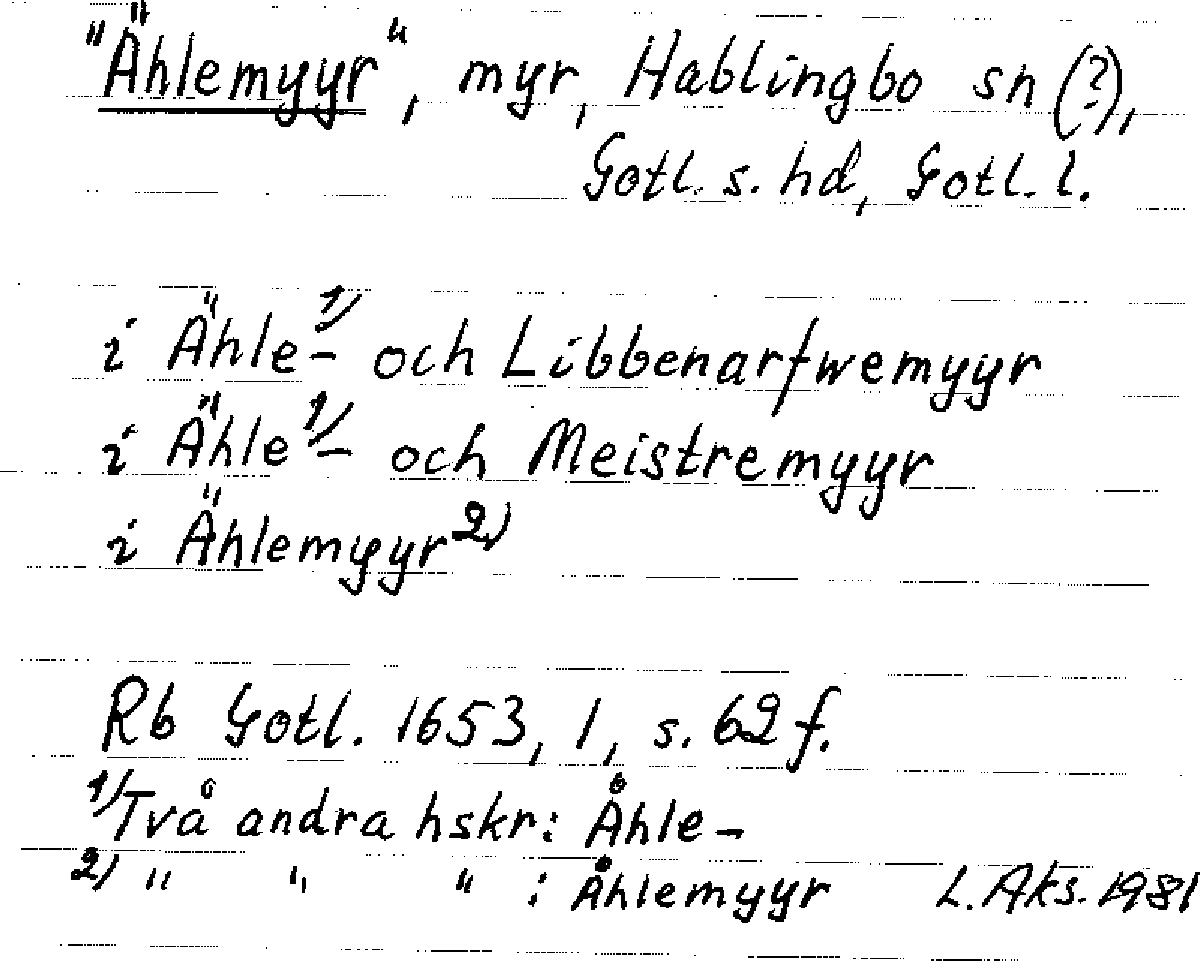 "Ählemyyr", myr, Hablingbo sn (?),
Gotl. s. hd, Gotl. l.
i Ähle-¹⁾ och Libbenarfwemyyr
i Ähle¹⁾- och Meistremyyr
i Ählemyyr²⁾
Rb Gotl. 1653, 1, s. 62 f.
1) Två andra hskr: Åhle-
2) " " " : Åhlemyyr L. Aks. 1981